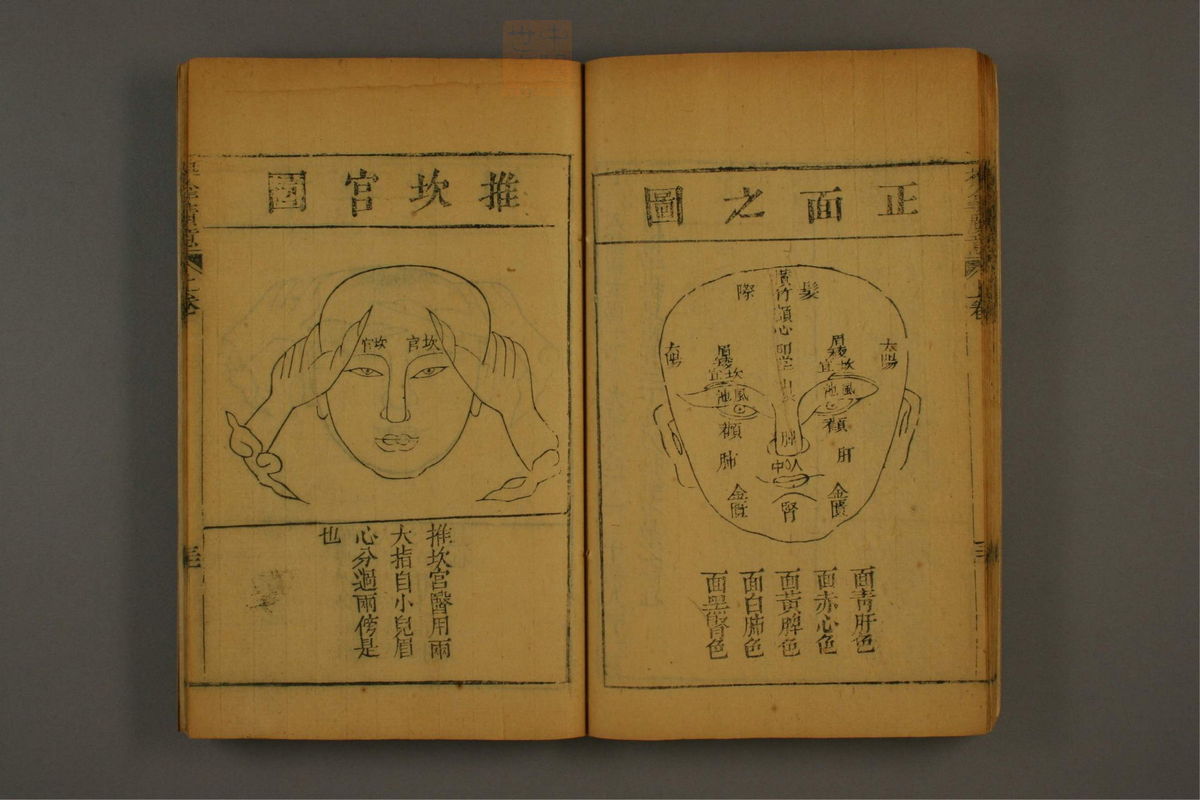 正面之圖
髮際
橫竹
額心
印堂
山根
太陽
太陽
眉
坎宮
風池
眉
坎宮
風池
肝
肺
脾
人中
金匱
金匱
腎
面青肝色
面赤心色
面黃脾色
面白肺色
面黑腎色
推坎官圖
坎官
坎官
推坎宮醫用兩
大指自小兒眉
心分過兩傍是
也